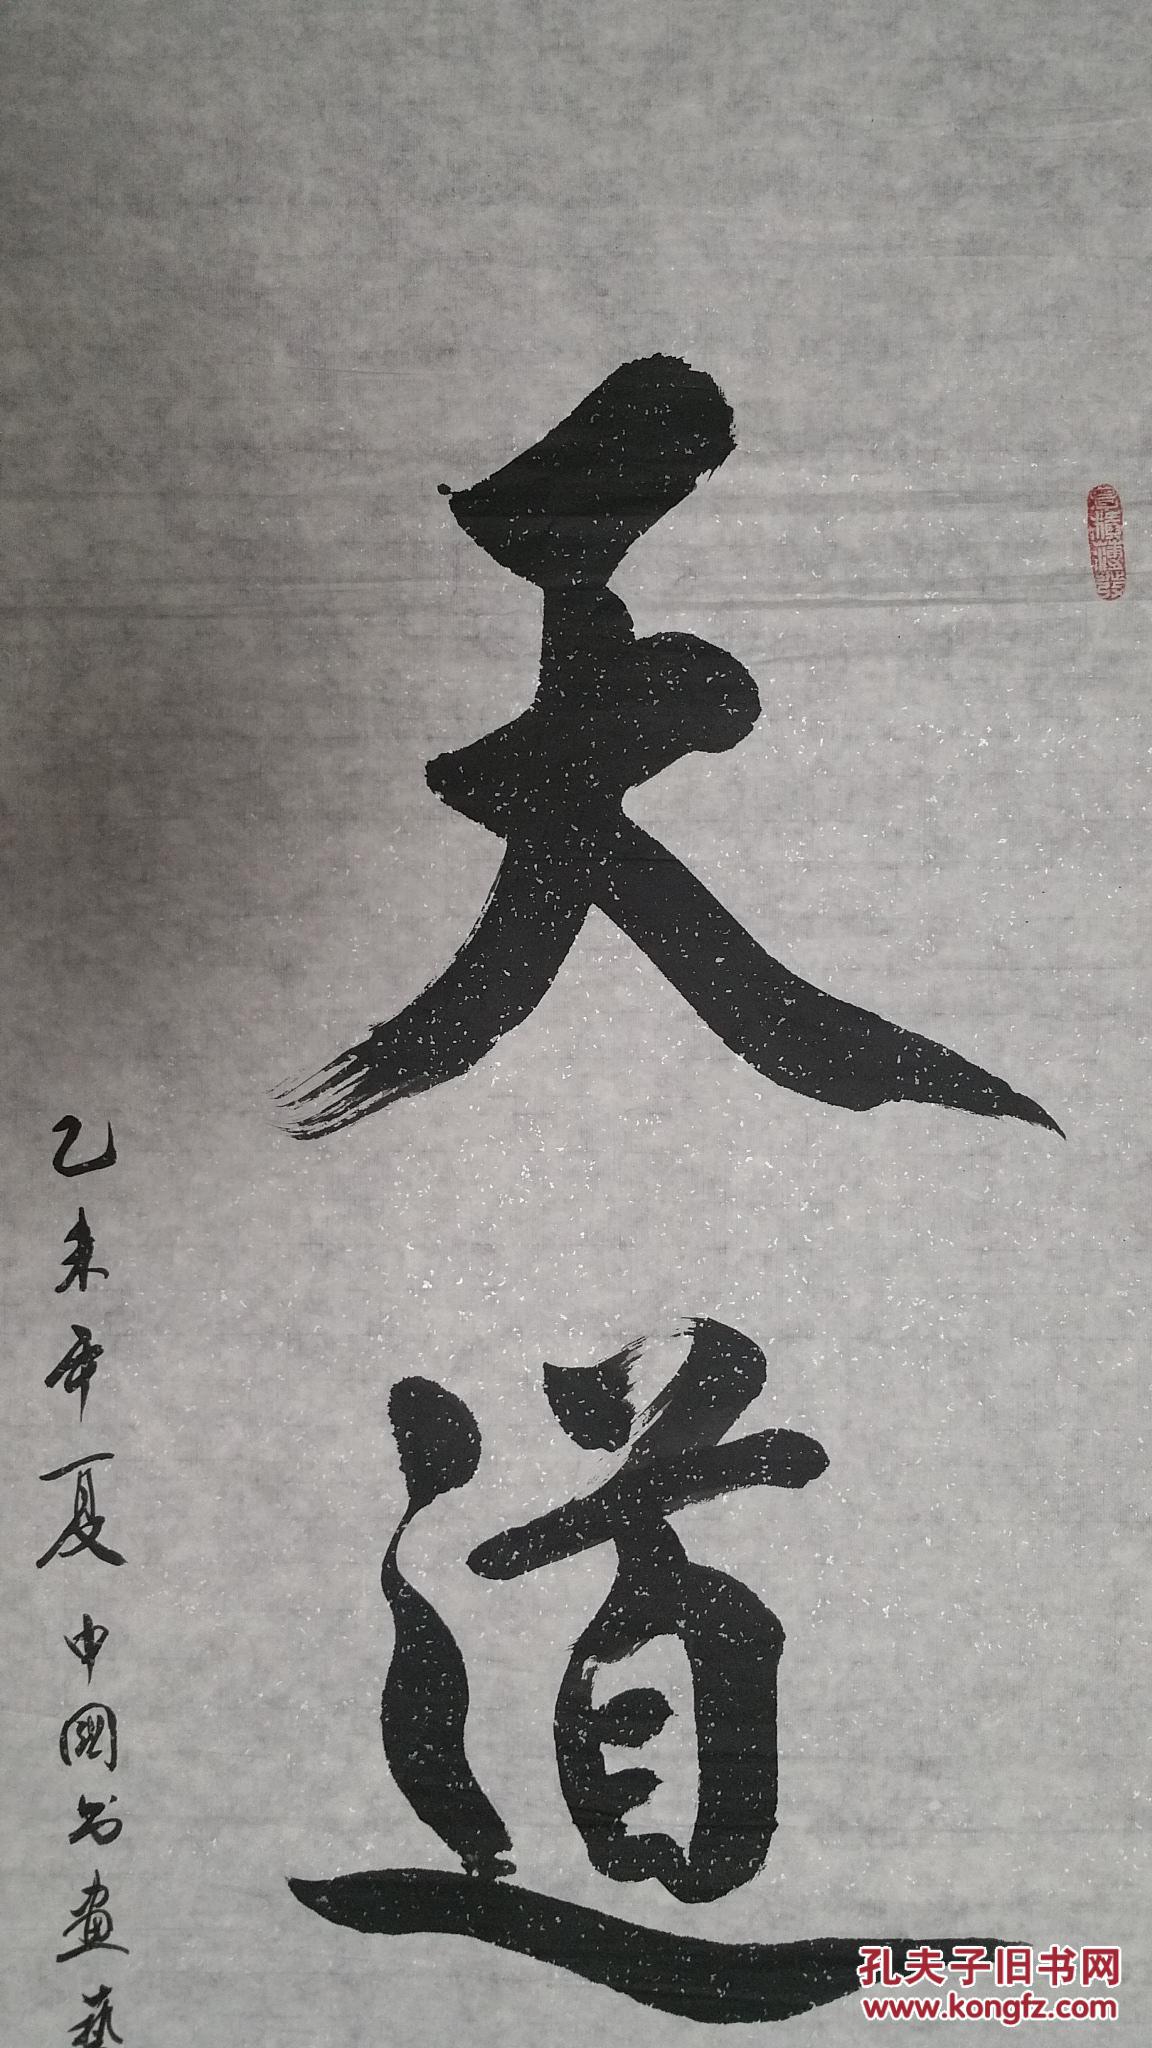 天道
乙未年夏中國书畫藝
厚積薄發
孔夫子旧书网
www.kongfz.com